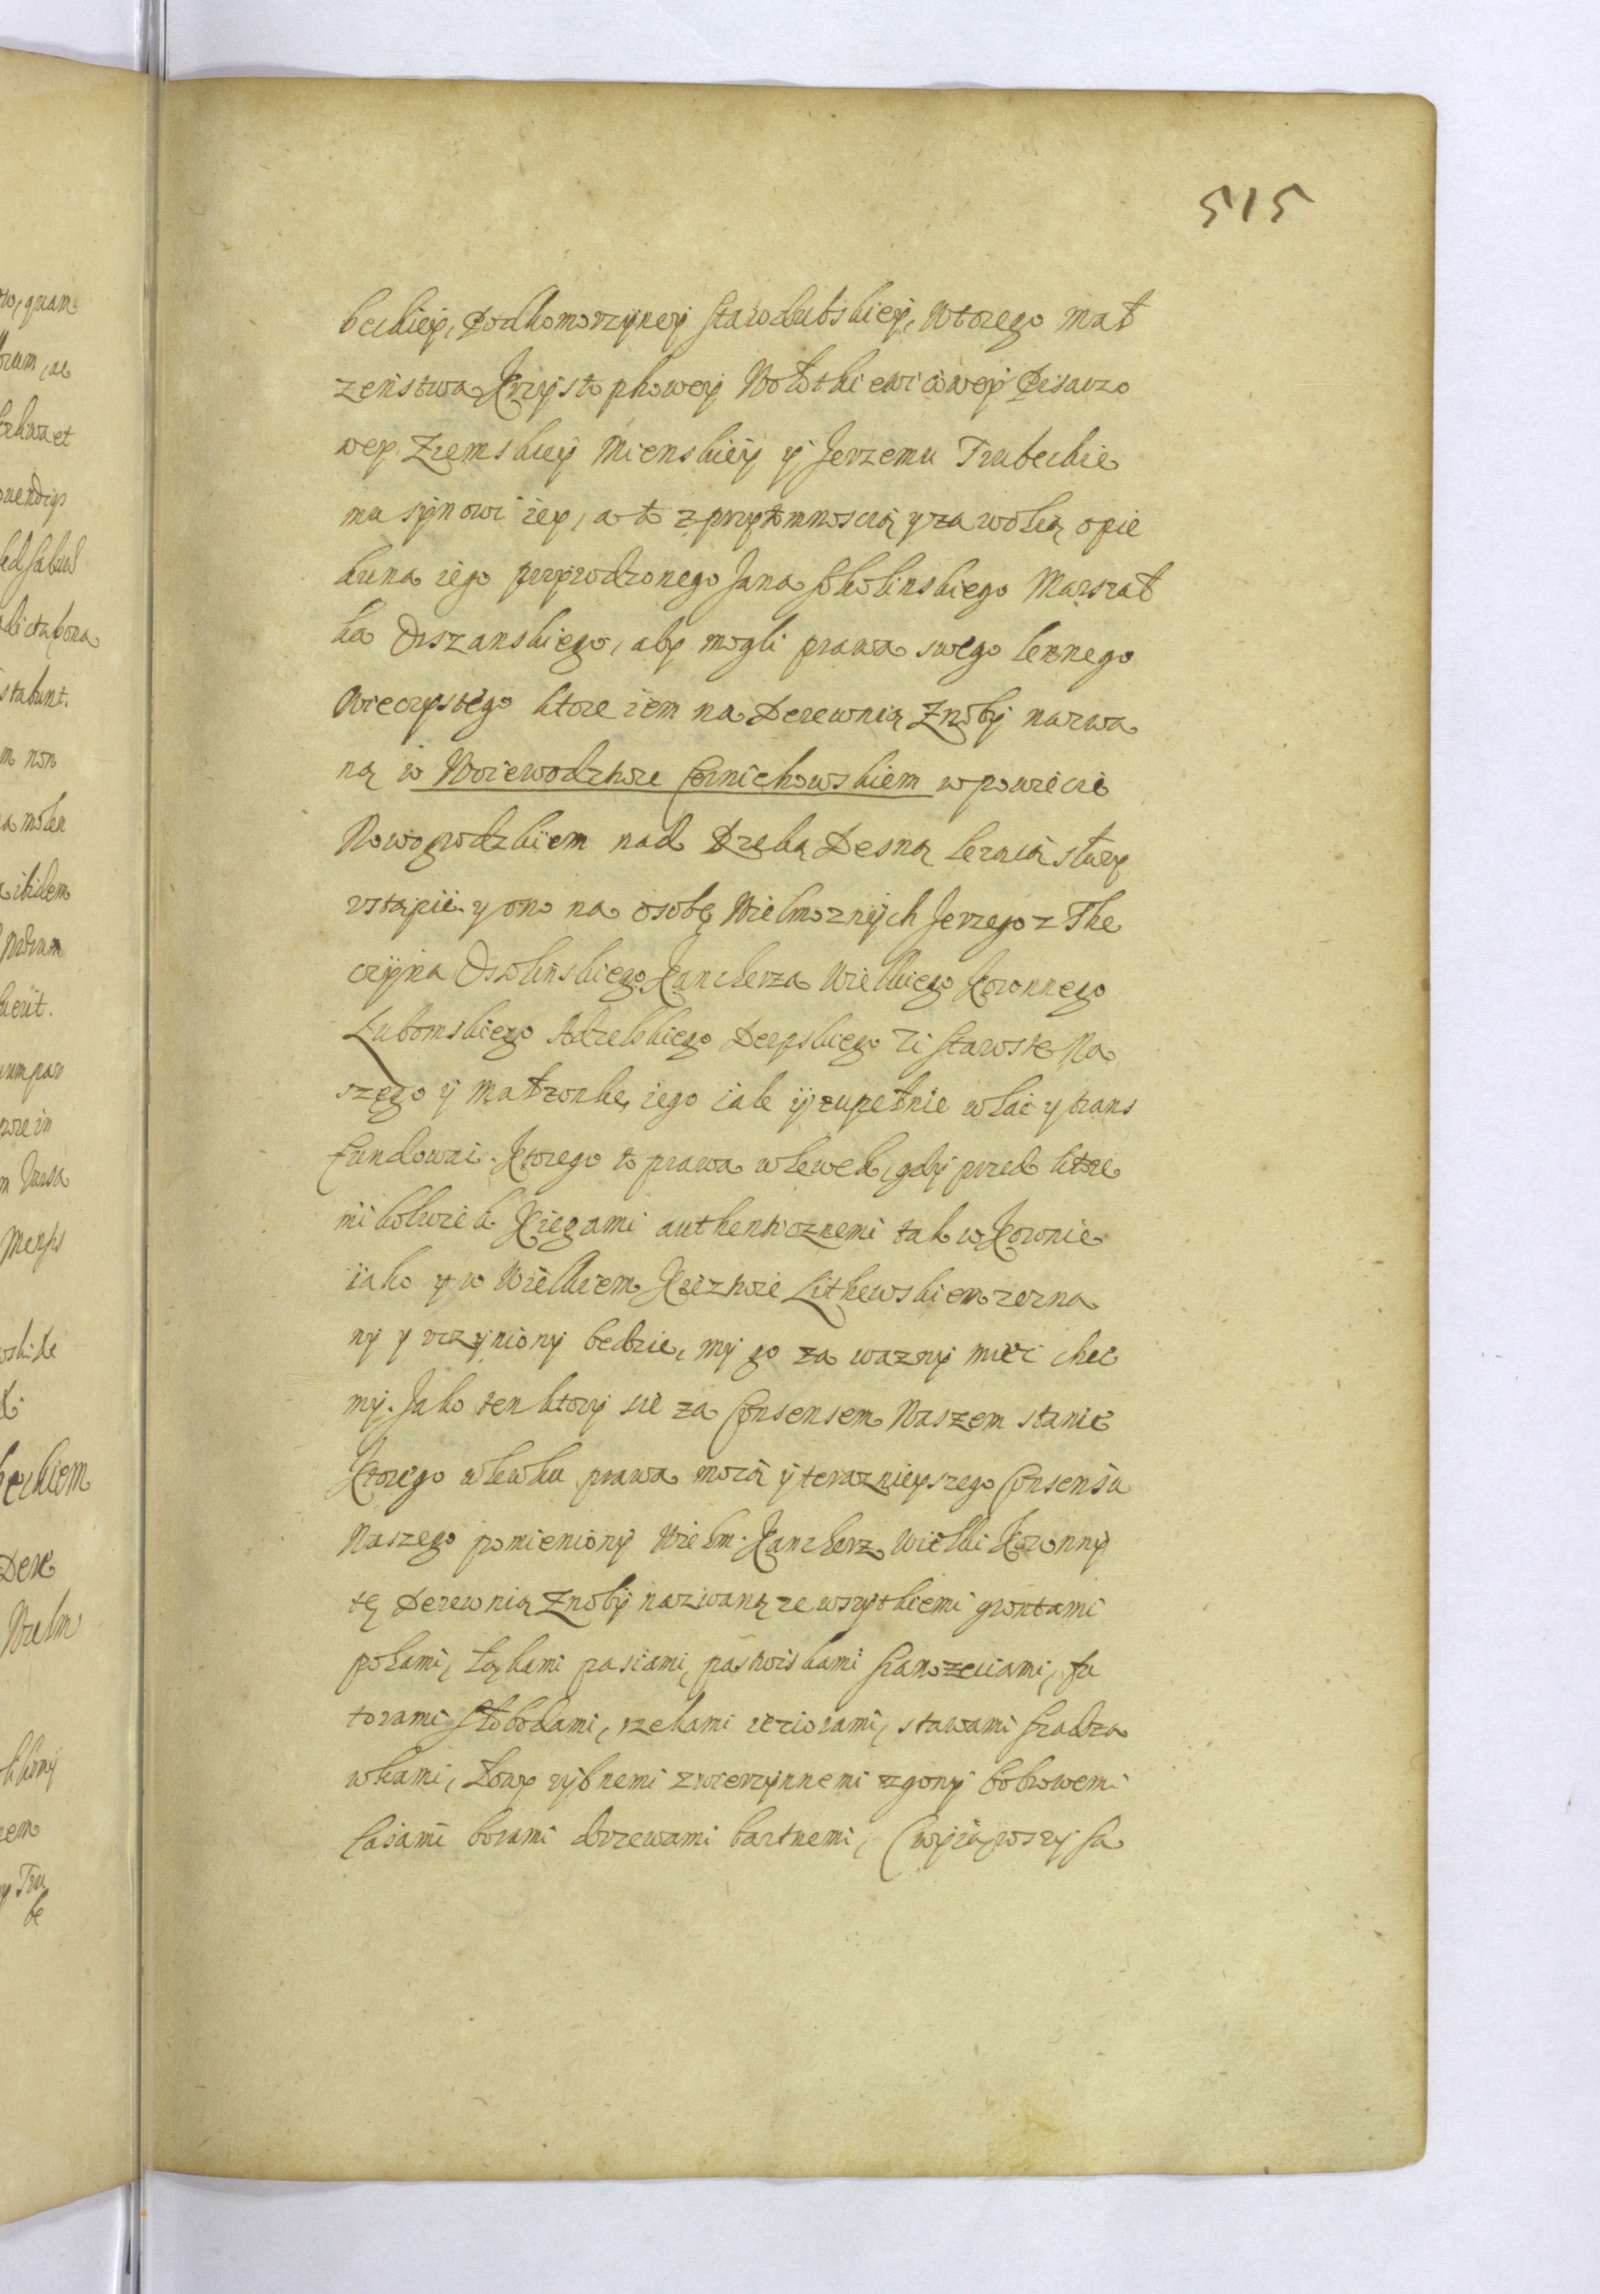 515
beckiey, Podkomorzyney Starodubskiey, Wtorego Mał
zenstwa Krzysztophowey Wołotkiewicowey Pisarzo
wey Ziemskiey Mienskiey y Jerzemu Trubeckie
mu synowi iey, a to z przytomnoscią y za wolą opie
kuna iego przyrodzonego Jana Sokolinskiego Marszał
ka Orszanskiego, aby mogli prawa swego lennego
Wieczystego ktore iem na Derewnią Znoby nazwa
ną w Woiewodztwie Czernichowskiem w powiecie
Nowogrodzkiem nad Rzeką Desną lezącą słuzy
vstąpić y ono na osobę Wielmoznych Jerzego z The
czyna Ossolinskiego Kanclerza Wielkiego Koronnego
Lubomskiego Adzelskiego Derpskiego Zi Starostę Na
szego y Małzonkę iego cale y zupełnie wlać y trans
fundować. Ktorego to prawa wlewek, gdy przed ktore
mi kolwiek Xięgami authenticznemi tak w Koronie
iako y w Wielkiem Xięztwie Lithewskiem zezna
ny y vczyniony będzie, my go za wazny mieć chce
my. Jako ten ktory się za Consensem Naszem stanie
Ktorego wlewku prawa mocą y teraznieyszego Consensu
Naszego pomieniony Wielm. Kanclerz Wielki Koronny
tę Derewnią Znoby nazwaną ze wszytkiemi grontami
polami, łąkami pasiami, pastwiskami sianozęciami, fu
torami Słobodami, rzekami ieziorami, stawami sadza
wkami, Łowy rybnemi zwierzynnemi zgony bobrowemi
lasami borami drzewami bartnemi, (wyiąwszy
to, quam
orum, ac
non
a molen
ibidem
um par
Merps
Welm
Tru
be